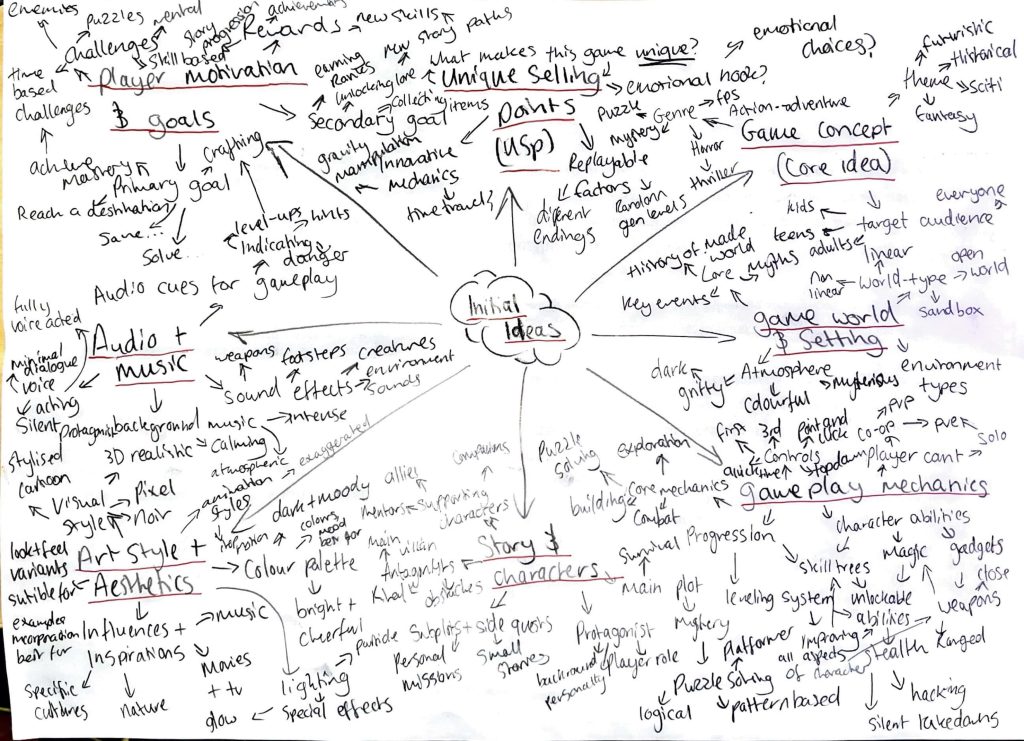 enemies
puzzles
mental
challenges
skill based
time
based
challenges
story
progression
achievements
Rewards
new skills
new story paths
Player motivation
& goals
earning
Ranks
unlocking lore
collecting items
Secondary goal
crafting
achieve
Mastery
Primary goal
Reach a destination
Save...
Solve...
What makes this game unique?
Unique Selling
points
(USP)
emotional hook?
emotional
choices?
gravity
manipulation
Innovative
mechanics
time travel
Replayable
factors
different
endings
Random
gen levels
Puzzle
Genre
fps
Action-adventure
mystery
Horror
thriller
Game concept
(Core idea)
theme
futuristic
Historical
Sciti
fantasy
target audience
kids
teens
adults
everyone
Initial
Ideas
level-ups
hints
Indicating
danger
Audio cues for gameplay
fully
voice acted
minimal
dialogue
voice
acting
Silent protagonist
Audio +
music
weapons
footsteps
creatures
environment
sounds
Sound effects
background music
intense
Calming
atmospheric
History of made
world
Lore
myths
key events
linear
non
linear
world-type
open
world
sandbox
game world
& Setting
Atmosphere
dark
gritty
colourful
mysterious
environment
types
stylised
cartoon
3D realistic
Visual
style
Pixel
noir
animation
styles
exaggerated
look + feel
variants
Art Style +
Aesthetics
Colour palette
dark + moody
colours
mood
best for
bright +
cheerful
examples
best for
Influences +
Inspirations
music
Movies
+ tv
nature
Specific
cultures
lighting
special effects
glow
Story &
characters
Supporting
characters
companions
allies
mentors
main
villain
Antagonists
Rival
obstacles
Subplots + side quests
Personal
missions
Small
stories
Protagonist
background
personality
Player role
main plot
Mystery
Gameplay mechanics
Core mechanics
exploration
Puzzle
Solving
building
Combat
Survival
Controls
first
3rd
point and
click
quicktime
topdown
player cant
Co-op
PvP
PvE
Solo
Progression
leveling system
skill trees
Platformer
Puzzle Solving
logical
pattern based
character abilities
magic
gadgets
unlockable
abilities
improving
all aspects
of character
weapons
close
Ranged
Stealth
hacking
silent takedowns